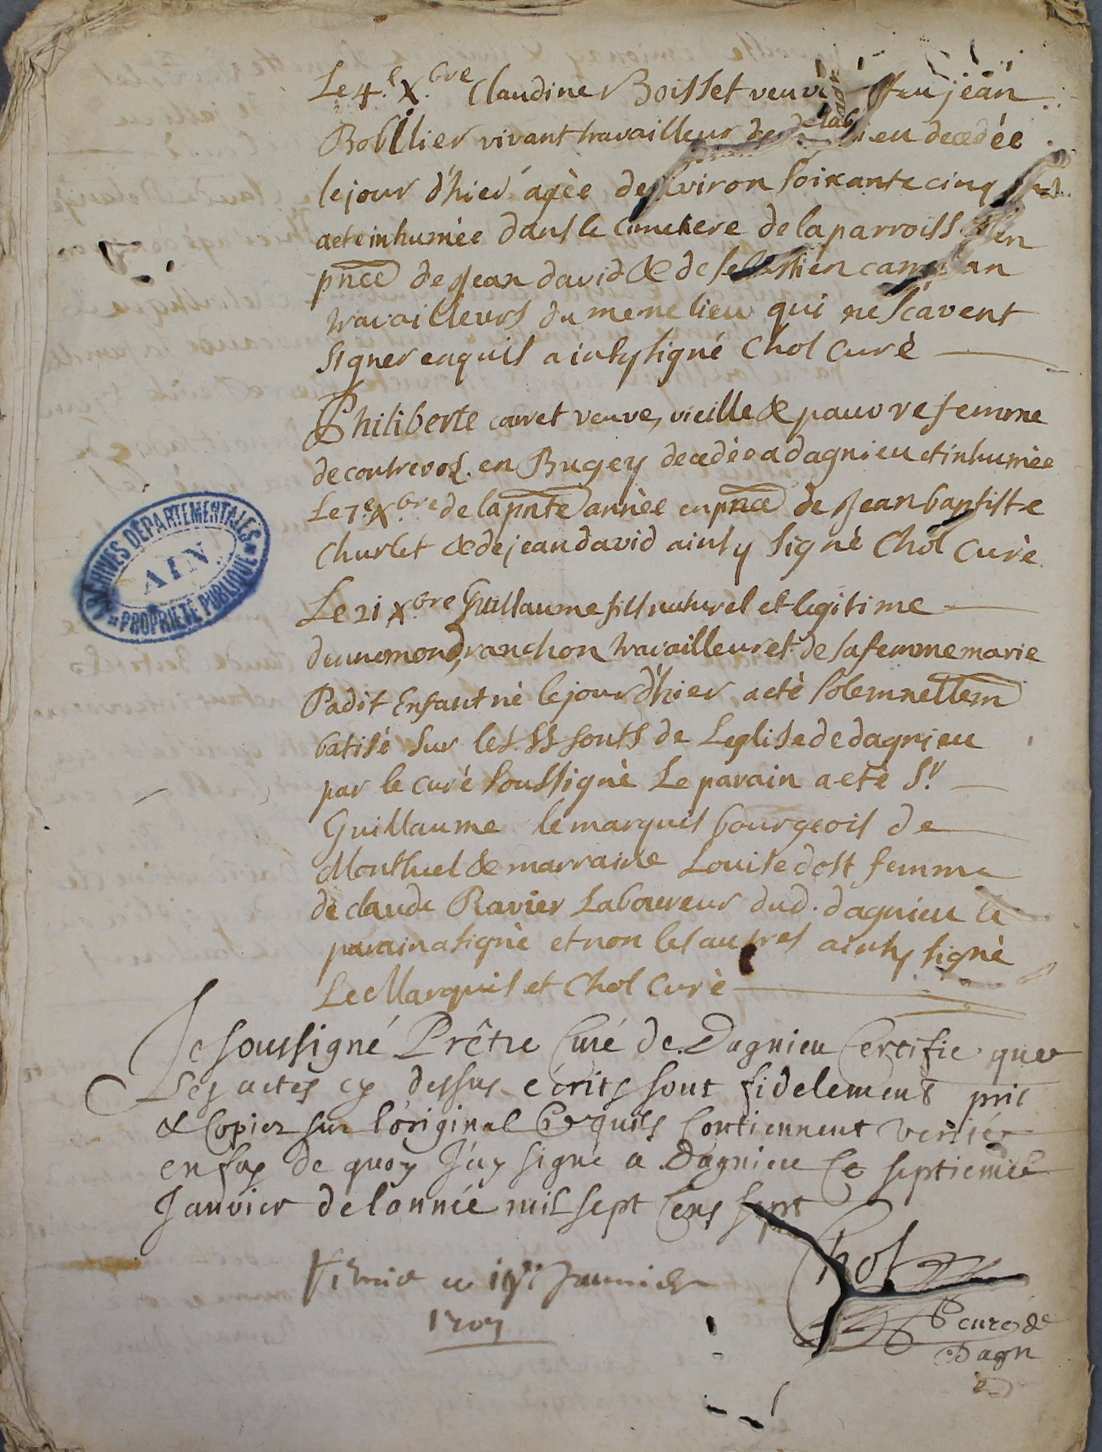 Le 4.e X.bre Claudine Boisset veuve feu jean
Bobillier vivant travailleur de decedée
le jour d'hier agèe denviron soixante cinq
a ete inhumée dans le cimetiere de la parroisse en
pnce de Jean david & de sebastien
travailleurs du meme lieu qui ne scavent
signer enquis ainsy signé Chol Curè
Philiberte carret veuve, vieille & pauvre femme
de contrevoz. en Bugey decedèe a dagnieu et inhumèe
Le 7.e X.bre de la pnte annèe en pnce de Jean baptiste
Churlet & de jean david ainsy signè Chol Curè.
Le 21 X.bre Guillaume fils naturel et legitime
dennemond ranchon travailleur et de sa femme marie
Padit Enfant nè le jour d'hier a etè solemnellem
batisè sur les SS fonts de Leglise de dagnieu
par le curè soussignè Le parain a etè Sr
Guillaume le marquis bourgeois de
Montluel & marraine Louise dost femme
de claude Ravier Laboureur dud. dagnieu le
parain a signè et non les autres ainsy signè
Le Marquis et Chol Curè
Je soussigné Prêtre Curé de Dagnieu Certifie que
Les actes cy dessus ecrits sont fidelement pris
& Copiez sur l'original & quils Contiennent veritè
en foy de quoy J'ay signé a Dagnieu Ce septieme
Janvier de lannée mil sept Cens sept
Chol
Curé de
Dagn
ce Januier
1707
ARCHIVES DÉPARTEMENTALES
AIN
PROPRIÉTÉ PUBLIQUE